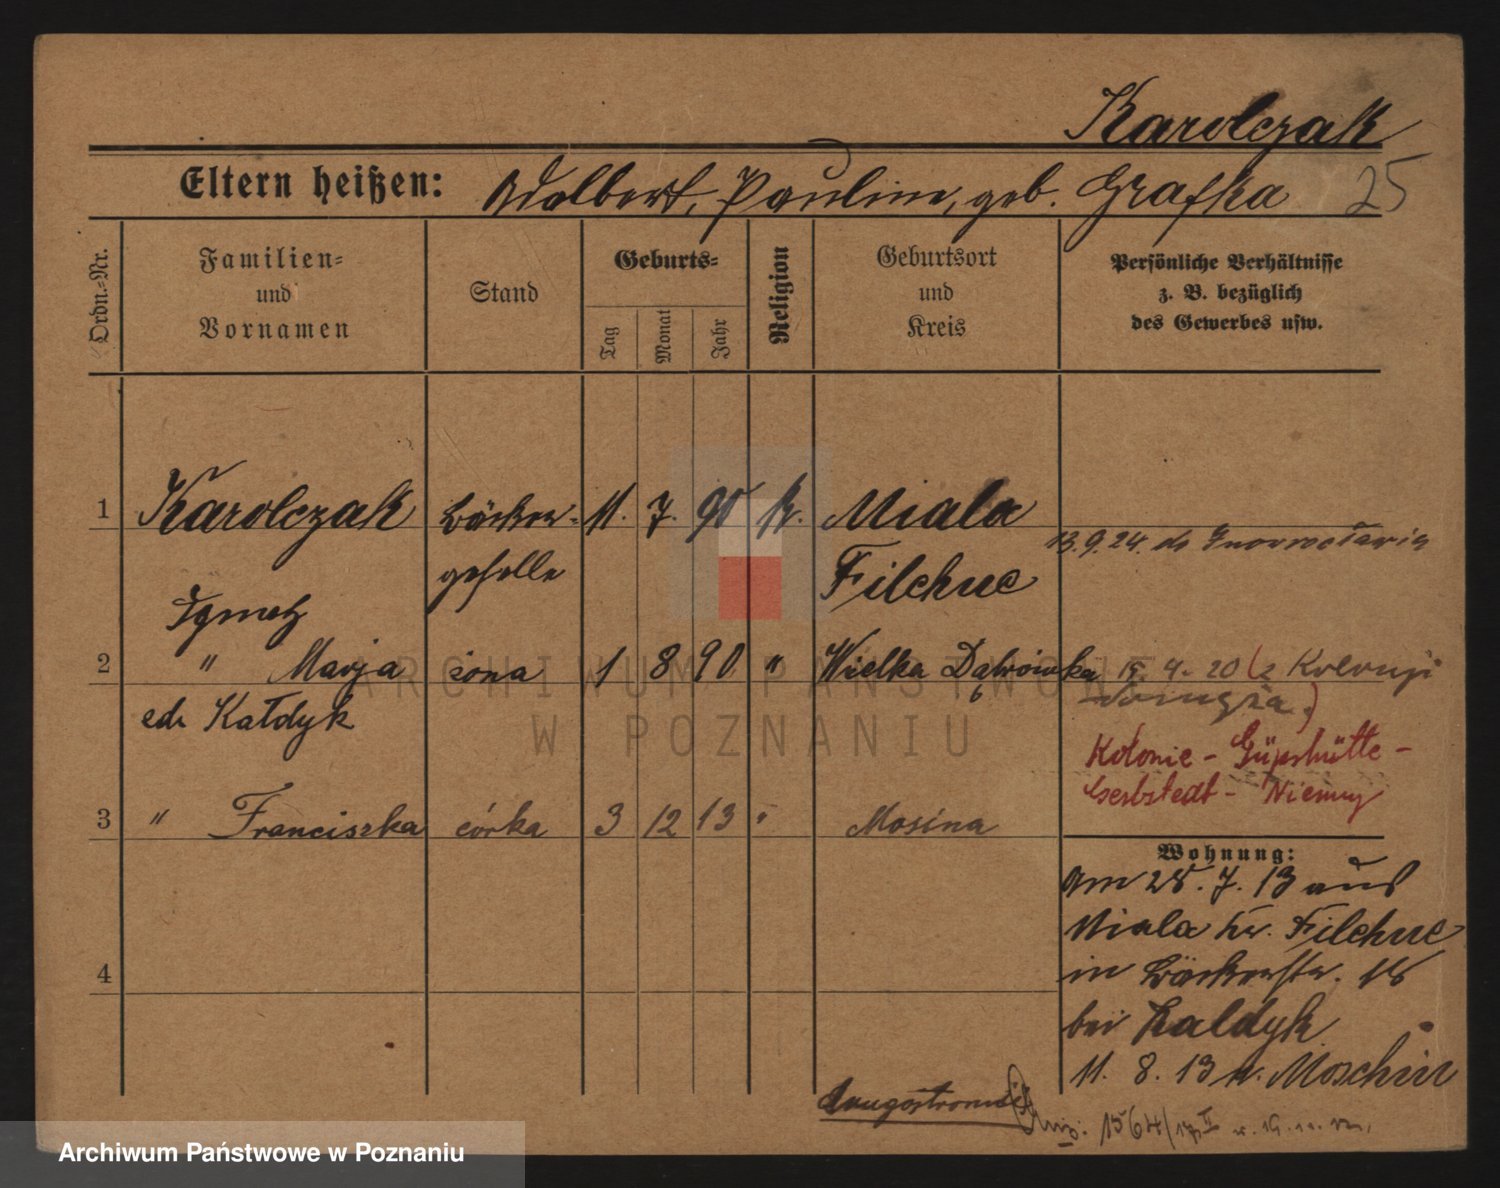 Karolczak
Eltern heißen: Adalbert, Pauline, geb. Grafka 25
Ordn.-Nr.
Familien-
und
Vornamen
Stand
Geburts-
Tag
Monat
Jahr
Religion
Geburtsort
und
Kreis
Persönliche Verhältnisse
z. B. bezüglich
des Gewerbes usw.
1 Karolczak Bäcker- 11. 7. 90 k. Miala
13.9.24. do Inowrocławia
geselle Filehne
Ignatz
2 " Marja żona 1 8 90 " Wielka Dąbrówka 15. 4. 20 (z Kolonji
Kałdyk
Kolonie - Güpshütte -
Gerbstedt - Niemcy
3 " Franciszka córka 3 12 13 " Mosina
Wohnung:
am 25. 7. 13 aus
Miala Kr. Filehne
in Bäckerstr. 18
bei Kaldyk
11. 8. 13 n. Moschin
4
1564/17 II
ARCHIWUM PAŃSTWOWE
W POZNANIU
Archiwum Państwowe w Poznaniu